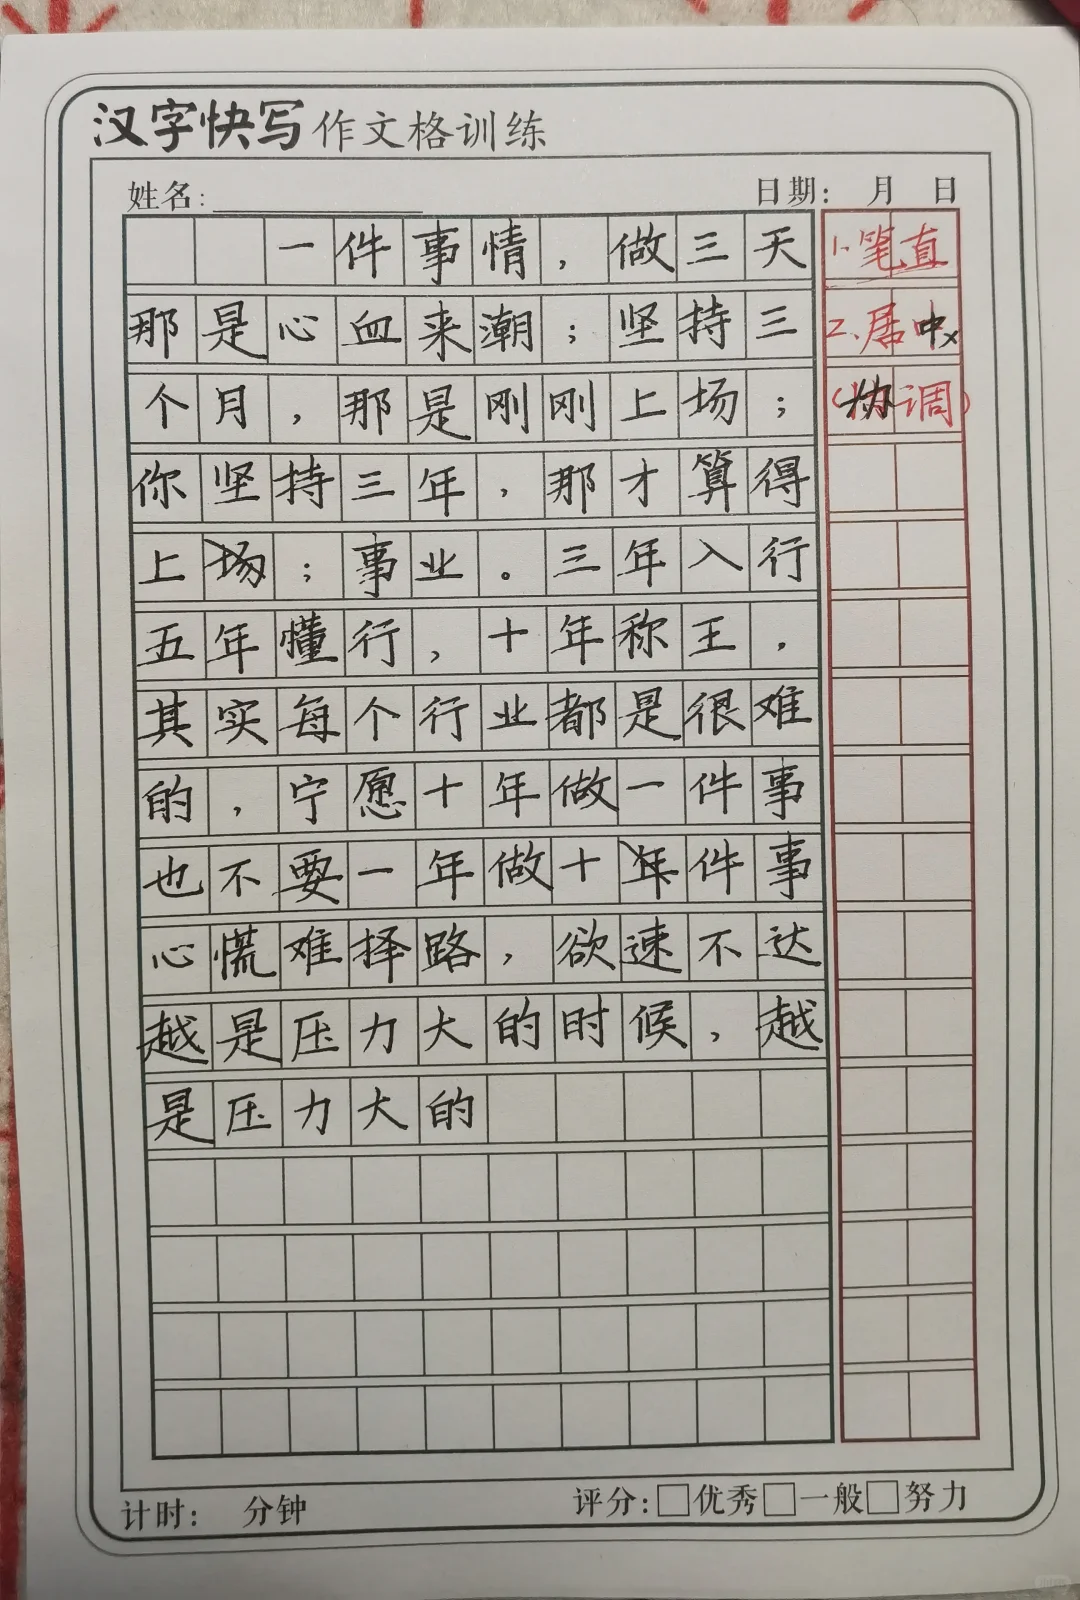 汉字快写作文格训练
姓名: 日期: 月 日
一件事情，做三天
那是心血来潮；坚持三
个月，那是刚刚上场；
你坚持三年，那才算得
上场；事业。三年入行
五年懂行，十年称王，
其实每个行业都是很难
的，宁愿十年做一件事
也不要一年做十年件事
心慌难择路，欲速不达
越是压力大的时候，越
是压力大的
1.笔直
2、居中x
(协调)
计时: 分钟 评分:□优秀□一般□努力